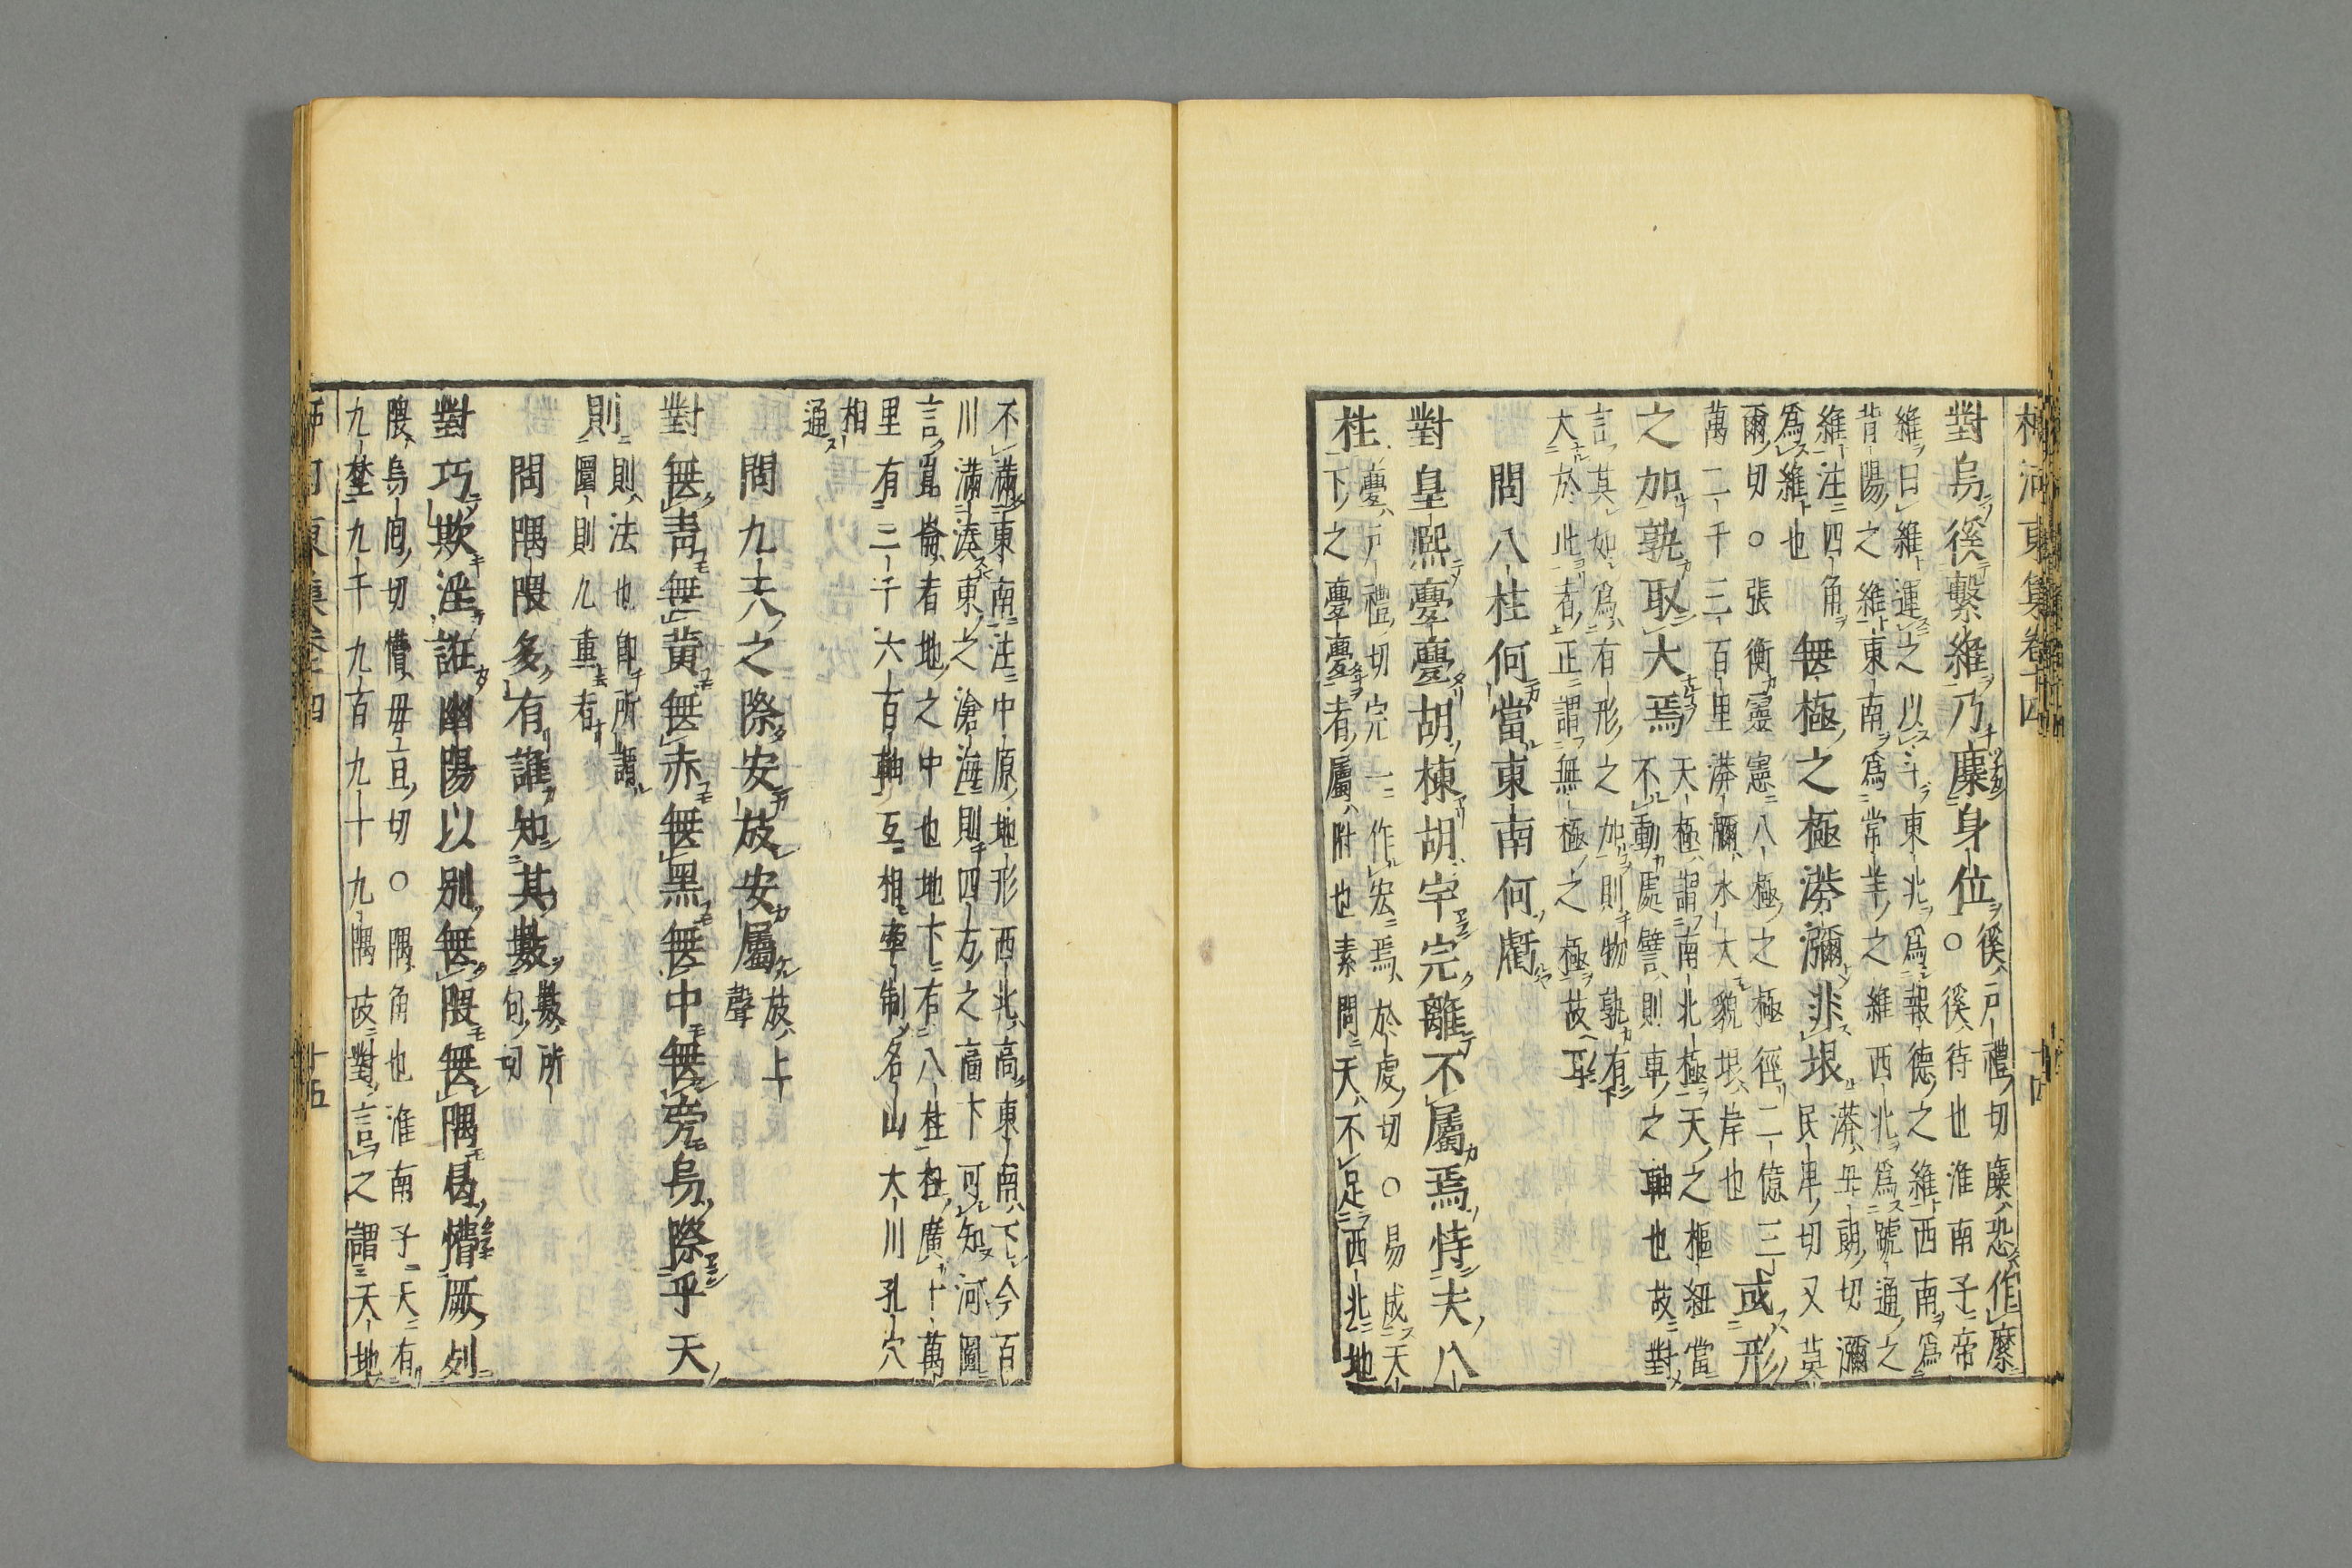 柳河東集卷十四 十四
對烏徯繫維乃麋身位徯戶禮切麋恐作縻○徯待也淮南子帝
維曰維運之以斗東北爲報德之維西南爲背陽之維東南爲常羊之維西北爲號通之
維注四角爲維也無極之極漭瀰非垠漭毋朗切瀰民卑切又莫
爾切○張衡靈憲八極之極徑二億三萬二千三百里漭瀰水大貌垠岸也或形
之加孰取大焉天極謂南北極天之樞紐當不動處譬則車之軸也故對
言其如爲有形之加則物孰有大於此者正謂無極之極故耳
問八柱何當東南何虧
對皇熙亹亹胡棟胡宇完離不屬焉恃夫八
柱亹戶禮切完一作宏焉於虔切○易成天下之亹亹者屬附也素問天不足西北地
不滿東南注中原地形西北高東南下今百川滿湊東之滄海則四方之高下可知河圖
言崑崙者地之中也地下有八柱柱廣十萬里有三千六百軸互相牽制名山大川孔穴
相通
問九天之際安放安屬放上聲
對無青無黃無赤無黑無中無旁烏際乎天
則則法也即所謂圜則九重者
問隅隈多有誰知其數數所句切
對巧欺淫誑幽陽以別無隈無隅曷懵厥列
隈烏恢切懵毋亘切○隅角也淮南子天有九埜九千九百九十九隅故對言之謂天地
河東集卷十四 十五